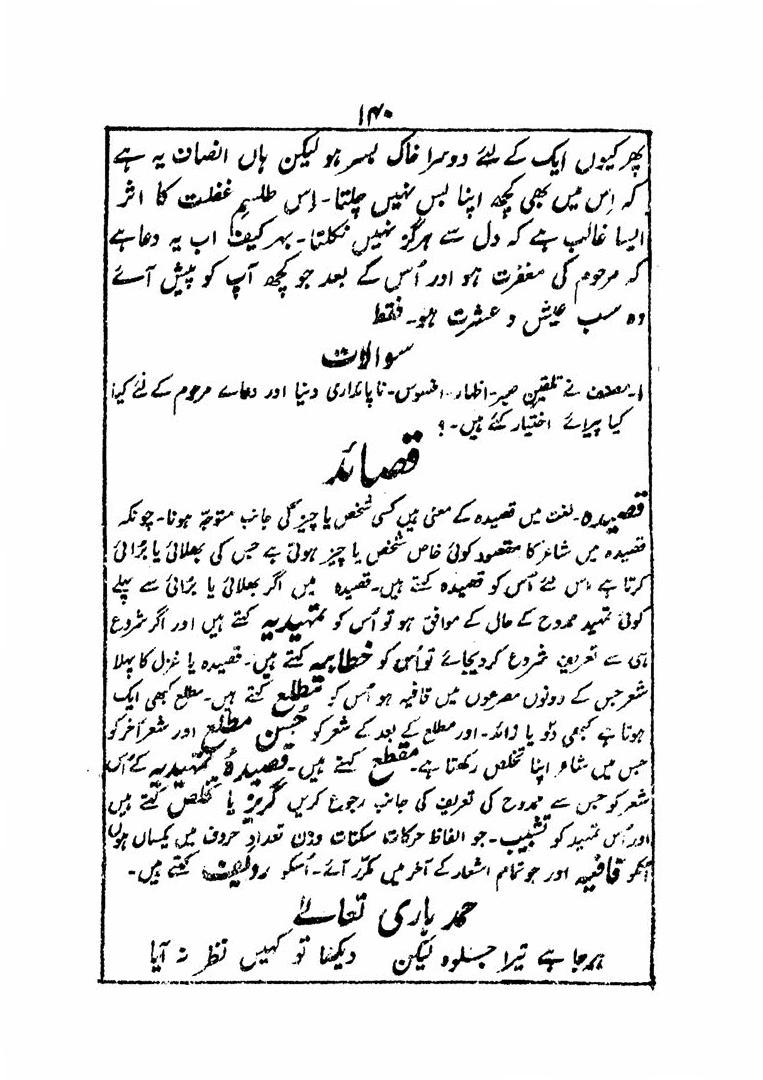 ۱۴۰
پھر کیوں ایک کے لئے دوسرا خاک بسر ہو لیکن ہاں انصان یہ ہے
کہ اِس میں بھی کچھ اپنا بس نہیں چلتا۔ اِس طلسمِ غفلت کا اثر
ایسا غالب ہے کہ دل سے ہرگز نہیں نکلتا۔ بہر کیف اب یہ دعا ہے
کہ مرحوم کی مغفرت ہو اور اُس کے بعد جو کچھ آپ کو پیش آئے
وہ سب عیش و عشرت ہو۔ فقط
سوالات
۱۔ مصنف نے تلقینِ صبر۔ اظہار۔ افسوس۔ ناپائداری دنیا اور دعاے مرحوم کے لئے کیا
کیا پیرائے اختیار کئے ہیں۔؟
قصائد
قصیدہ۔ لغت میں قصیدہ کے معنی ہیں کسی شخص یا چیز کی جانب متوجّہ ہونا۔ چونکہ
قصیدہ میں شاعر کا مقصود کوئی خاص شخص یا چیز ہوتی ہے جس کی بھلائی یا بُرائی
کرتا ہے اس لئے اُس کو قصیدہ کہتے ہیں۔ قصیدہ میں اگر بھلائی یا بُرائی سے پہلے
کوئی تمہید ممدوح کے حال کے موافق ہو تو اُس کو تمہیدیہ کہتے ہیں اور اگر شروع
ہی سے تعریف شروع کردیجائے تو اُس کو خطابیہ کہتے ہیں۔ قصیدہ یا غزل کا پہلا
شعر جس کے دونوں مصرعوں میں قافیہ ہو اُس کو مطلع کہتے ہیں۔ مطلع کبھی ایک
ہوتا ہے کبھی دو یا زائد۔ اور مطلع کے بعد کے شعر کو حُسنِ مطلع اور شعر آخر کو
جس میں شاعر اپنا تخلص رکھتا ہے۔ مقطع کہتے ہیں۔ قصیدۂ تمہیدیہ کے اُس
شعر کو جس سے ممدوح کی تعریف کی جانب رجوع کریں گریز یا تخلص کہتے ہیں
اور اُس تمہید کو تشبیب۔ جو الفاظ حرکات سکنات وزن تعدادِ حروف میں یکساں ہوں
اُنکو قافیہ اور جو تمام اشعار کے آخر میں مکرّر آئے۔ اُسکو ردیف کہتے ہیں۔
حمد باری تعالےٰ
ہر جا ہے تیرا جلوہ لیکن دیکھا تو کہیں نظر نہ آیا